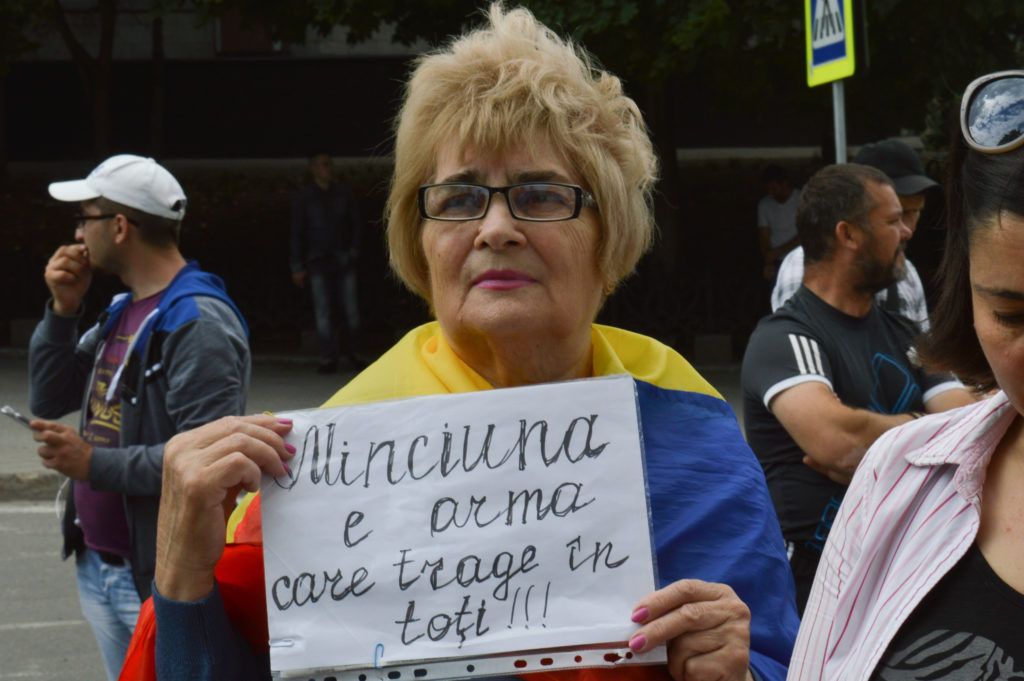 Minciuna
e arma
care trage în
toți!!!